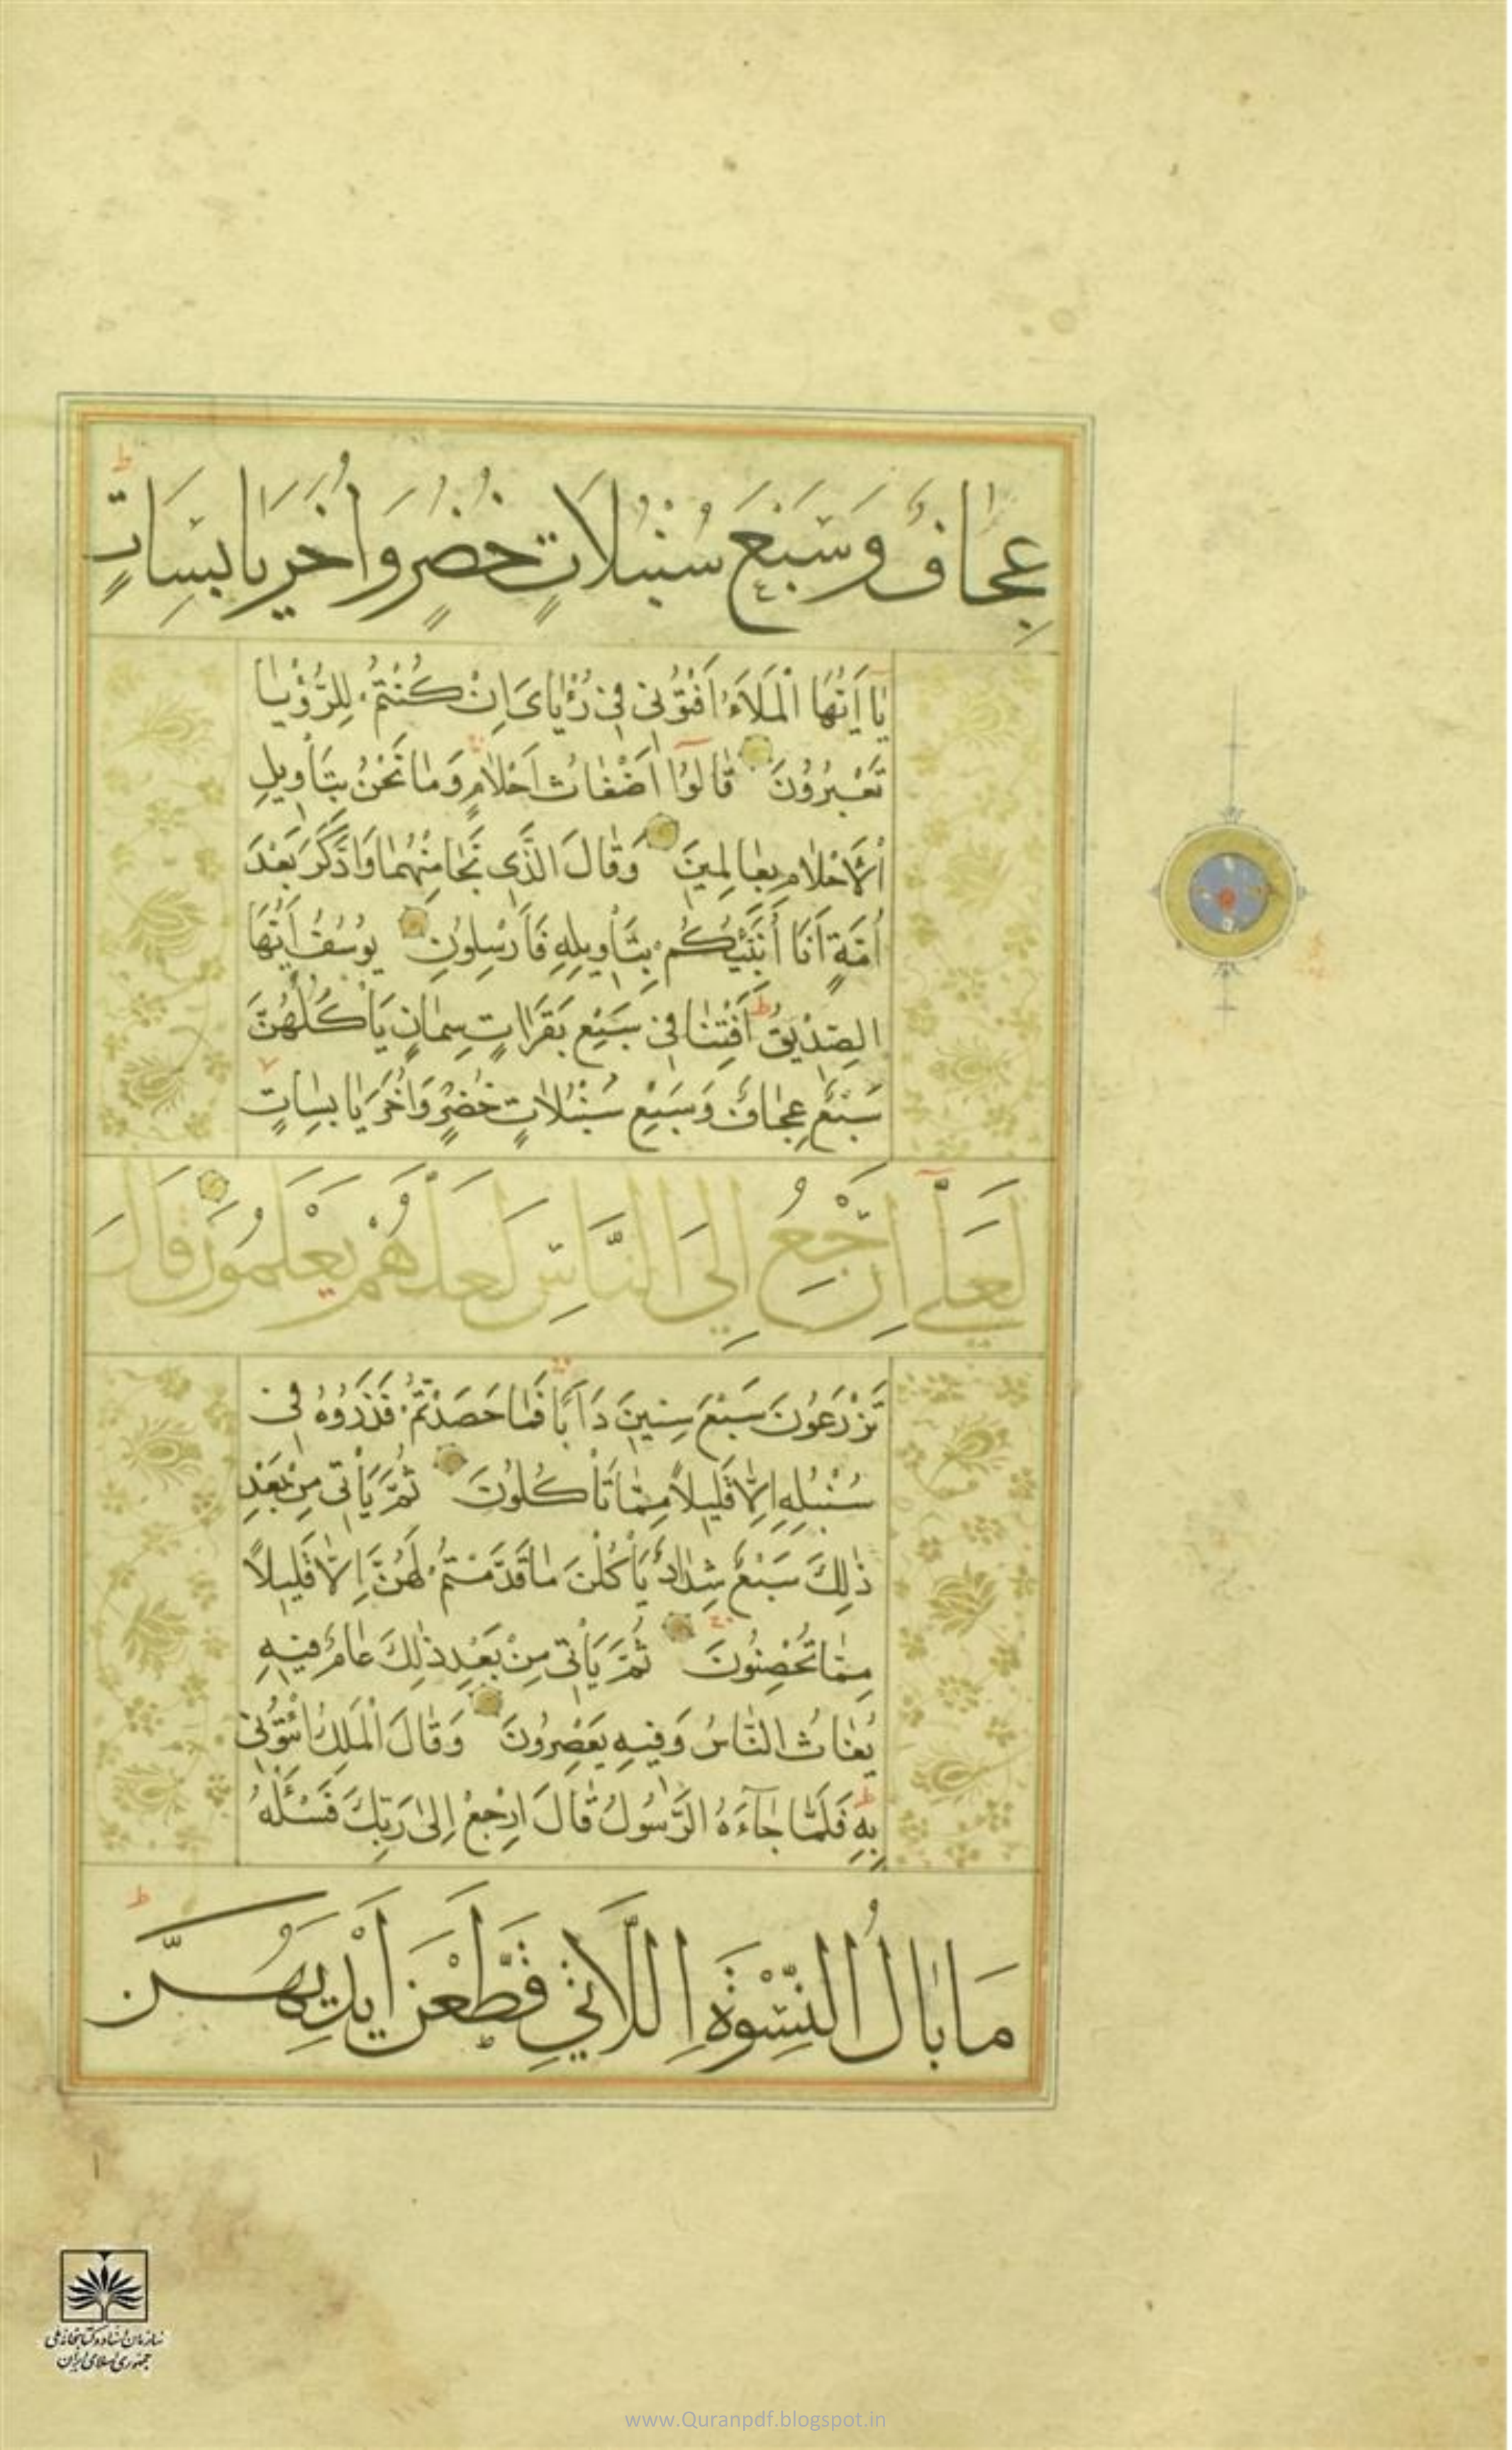 عِجَافٌ وَسَبْعَ سُنْبُلَاتٍ خُضْرٍ وَاُخَرَ يَابِسَاتٍ ط
يَا اَيُّهَا الْمَلَاءُ اَفْتُوُنِى فِى رُءْيَاىَ اِنْ كُنْتُمْ لِلرُّؤْيَا
تَعْبُرُونَ قَالُوْا اَضْغَاثُ اَحْلَامٍ وَمَا نَحْنُ بِتَأْوِيلِ
الْاَحْلَامِ بِعَالِمِينَ وَقَالَ الَّذِى نَجَا مِنْهُمَا وَادَّكَرَ بَعْدَ
اُمَّةٍ اَنَا اُنَبِّئُكُمْ بِتَأْوِيلِهِ فَاَرْسِلُونِ يُوسُفُ اَيُّهَا
الصِّدِّيقُ اَفْتِنَا فِى سَبْعِ بَقَرَاتٍ سِمَانٍ يَأْكُلُهُنَّ
سَبْعٌ عِجَافٌ وَسَبْعِ سُنْبُلَاتٍ خُضْرٍ وَاُخَرَ يَابِسَاتٍ
لَعَلِّى اَرْجِعُ اِلَى النَّاسِ لَعَلَّهُمْ يَعْلَمُونَ قَالَ
تَزْرَعُونَ سَبْعَ سِنِينَ دَاَبًا فَمَا حَصَدْتُمْ فَذَرُوهُ فِى
سُنْبُلِهِ اِلَّا قَلِيلًا مِمَّا تَأْكُلُونَ ثُمَّ يَأْتِى مِنْ بَعْدِ
ذٰلِكَ سَبْعٌ شِدَادٌ يَأْكُلْنَ مَا قَدَّمْتُمْ لَهُنَّ اِلَّا قَلِيلًا
مِمَّا تُحْصِنُونَ ثُمَّ يَأْتِى مِنْ بَعْدِ ذٰلِكَ عَامٌ فِيهِ
يُغَاثُ النَّاسُ وَفِيهِ يَعْصِرُونَ وَقَالَ الْمَلِكُ ائْتُونِى
بِهِ فَلَمَّا جَآءَهُ الرَّسُولُ قَالَ ارْجِعْ اِلَى رَبِّكَ فَسْئَلْهُ
مَا بَالُ النِّسْوَةِ اللَّاتِى قَطَّعْنَ اَيْدِيَهُنَّ ط
سازمان اسناد و کتابخانه ملی
جمهوری اسلامی ایران
www.Quranpdf.blogspot.in